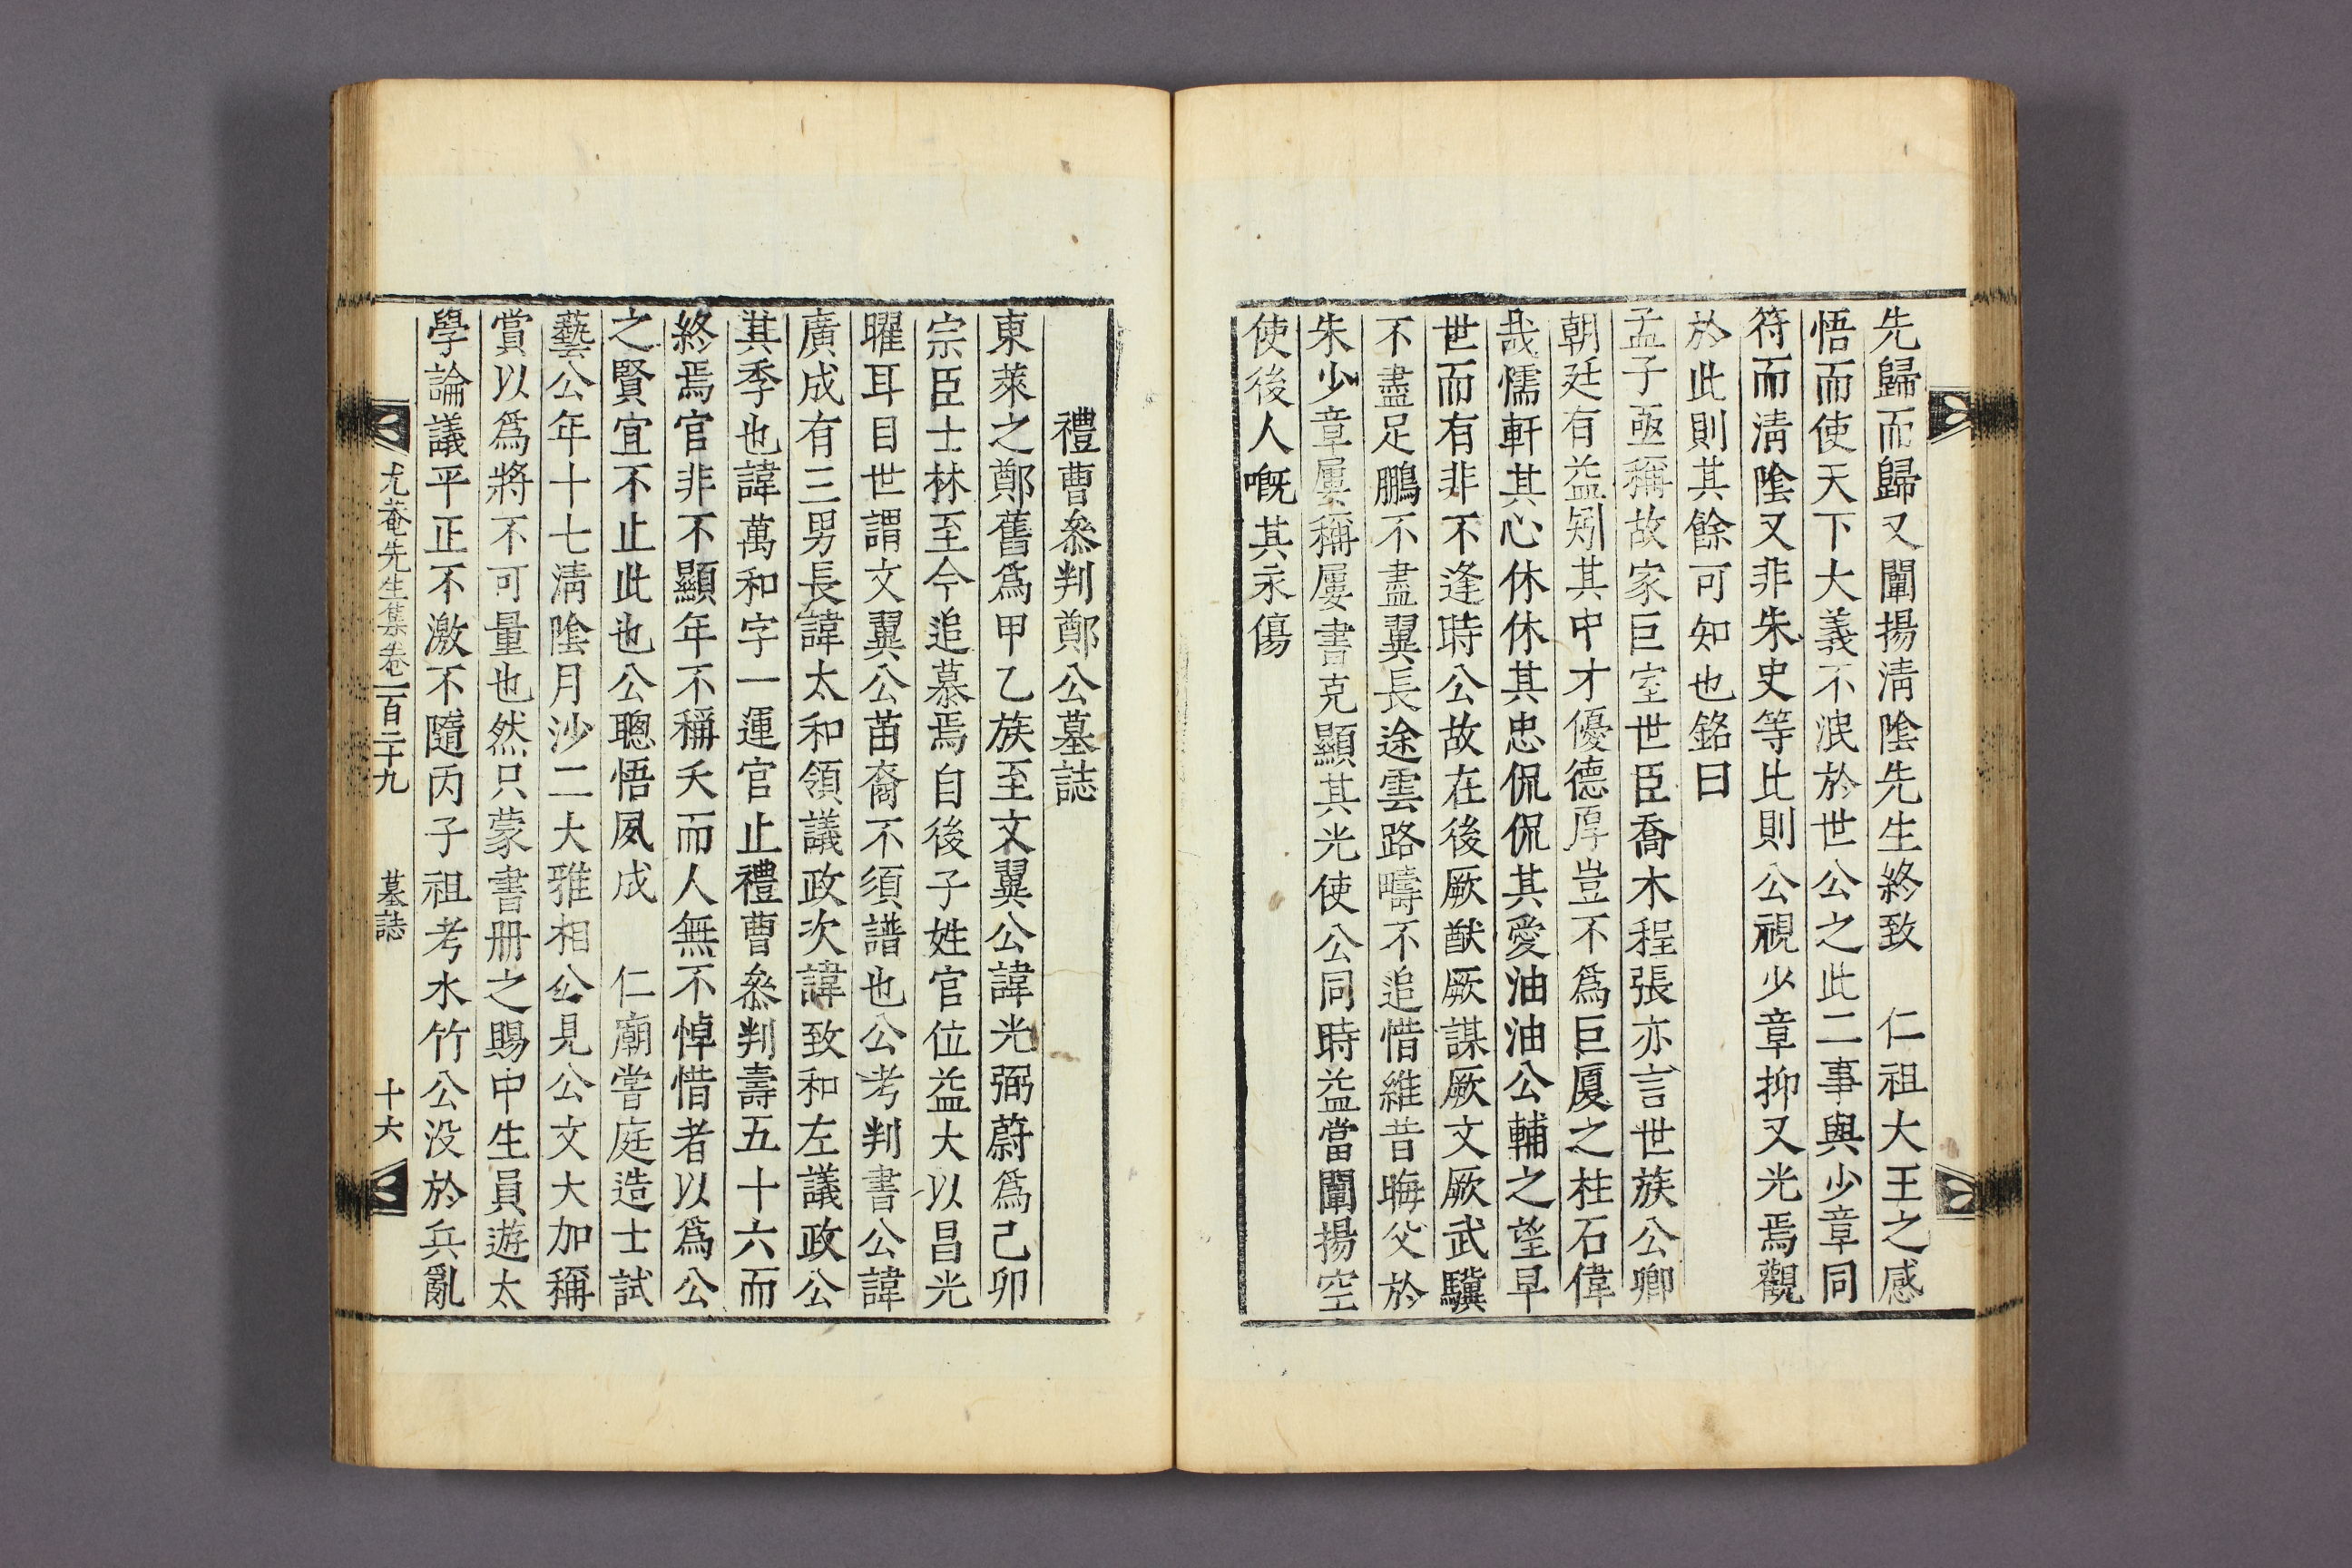 先歸而歸又闡揚淸陰先生終致 仁祖大王之感
悟而使天下大義不泯於世公之此二事與少章同
符而淸陰又非朱史等比則公視少章抑又光焉觀
於此則其餘可知也銘曰
孟子亟稱故家巨室世臣喬木程張亦言世族公卿
朝廷有益矧其中才優德厚豈不爲巨厦之柱石偉
哉懦軒其心休休其忠侃侃其愛油油公輔之望早
世而有非不逢時公故在後厥猷厥謀厥文厥武驥
不盡足鵬不盡翼長途雲路疇不追惜維昔晦父於
朱少章屢稱屢書克顯其光使公同時益當闡揚空
使後人嘅其永傷
禮曹叅判鄭公墓誌
東萊之鄭舊爲甲乙族至文翼公諱光弼蔚爲己卯
宗臣士林至今追慕焉自後子姓官位益大以昌光
曜耳目世謂文翼公苗裔不須譜也公考判書公諱
廣成有三男長諱太和領議政次諱致和左議政公
其季也諱萬和字一運官止禮曹叅判壽五十六而
終焉官非不顯年不稱夭而人無不悼惜者以爲公
之賢宜不止此也公聰悟夙成 仁廟嘗庭造士試
藝公年十七淸陰月沙二大雅相公見公文大加稱
賞以爲將不可量也然只蒙書册之賜中生員遊太
學論議平正不激不隨丙子祖考水竹公没於兵亂
尤菴先生集卷一百二十九 墓誌 十六